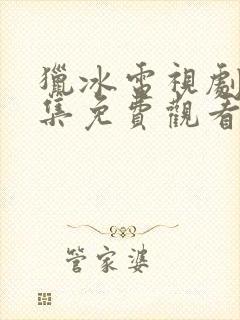 獵冰電視劇
集免費觀看
管家婆